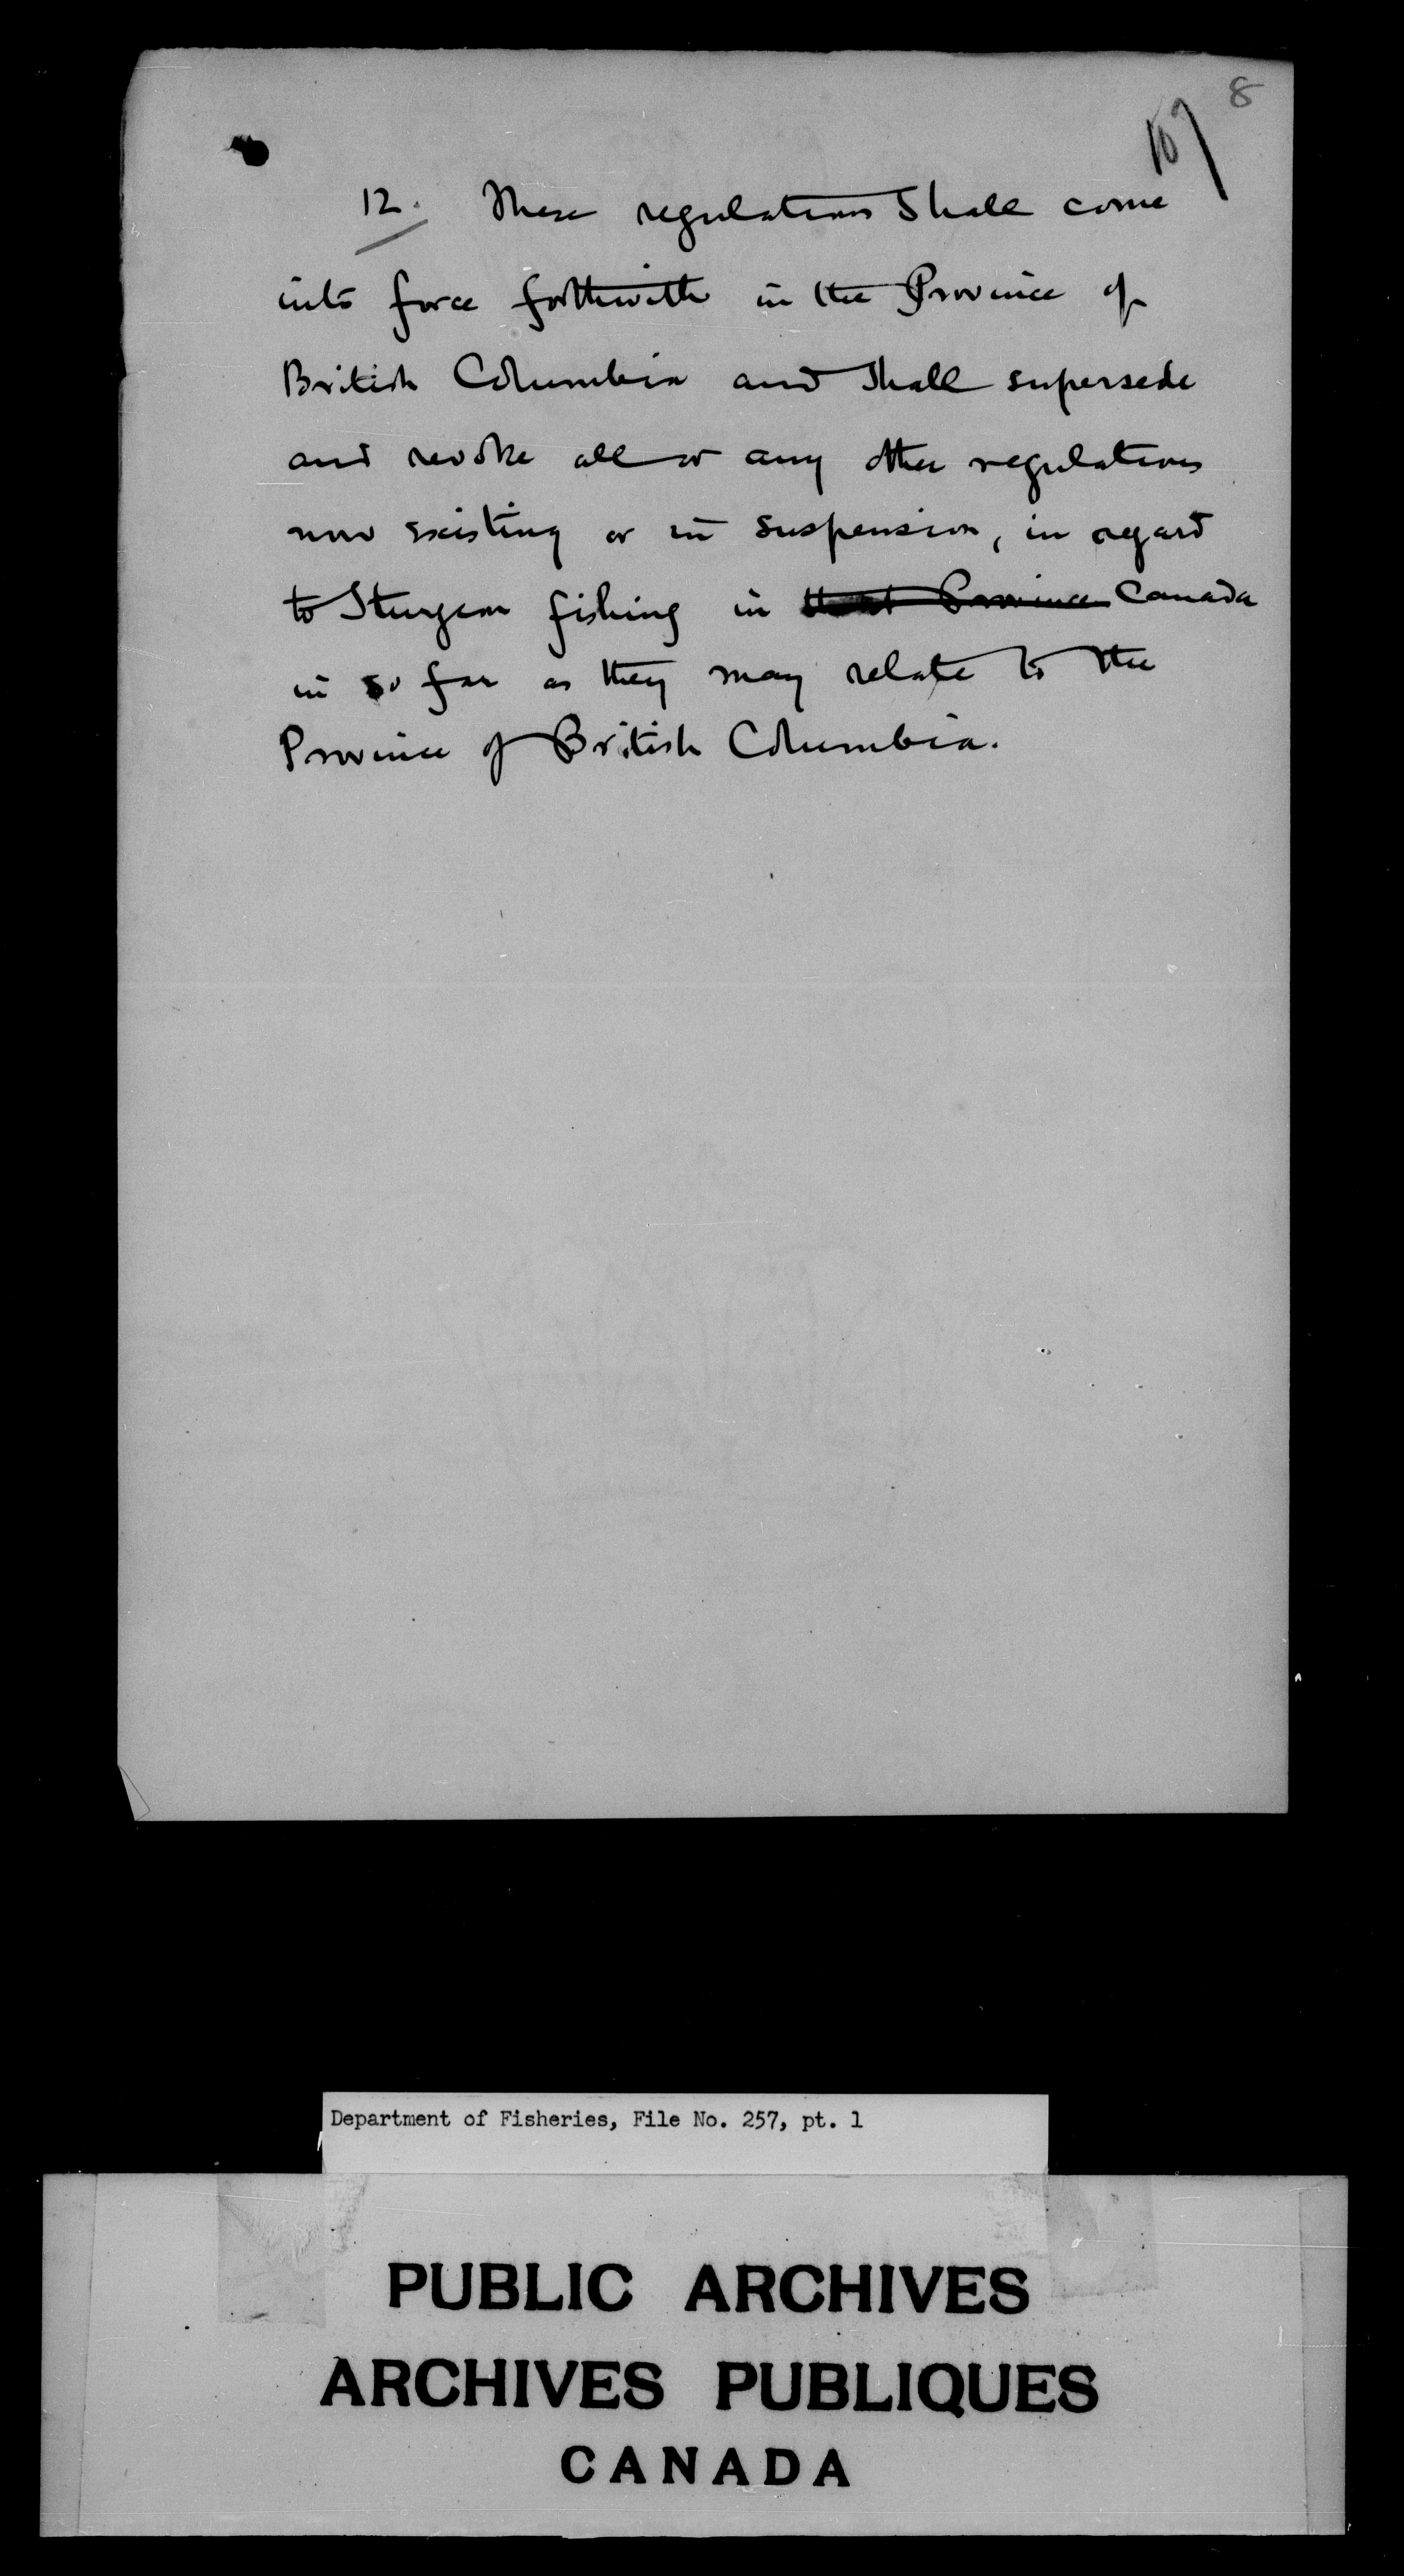 8
107
12. These regulations shall come
into force forthwith in the Province of
British Columbia and shall supersede
and revoke all or any other regulations
now existing or in suspension, in regard
to Sturgeon fishing in that Province Canada
in so far as they may relate to the
Province of British Columbia.
Department of Fisheries, File No. 257, pt. 1
PUBLIC ARCHIVES
ARCHIVES PUBLIQUES
CANADA